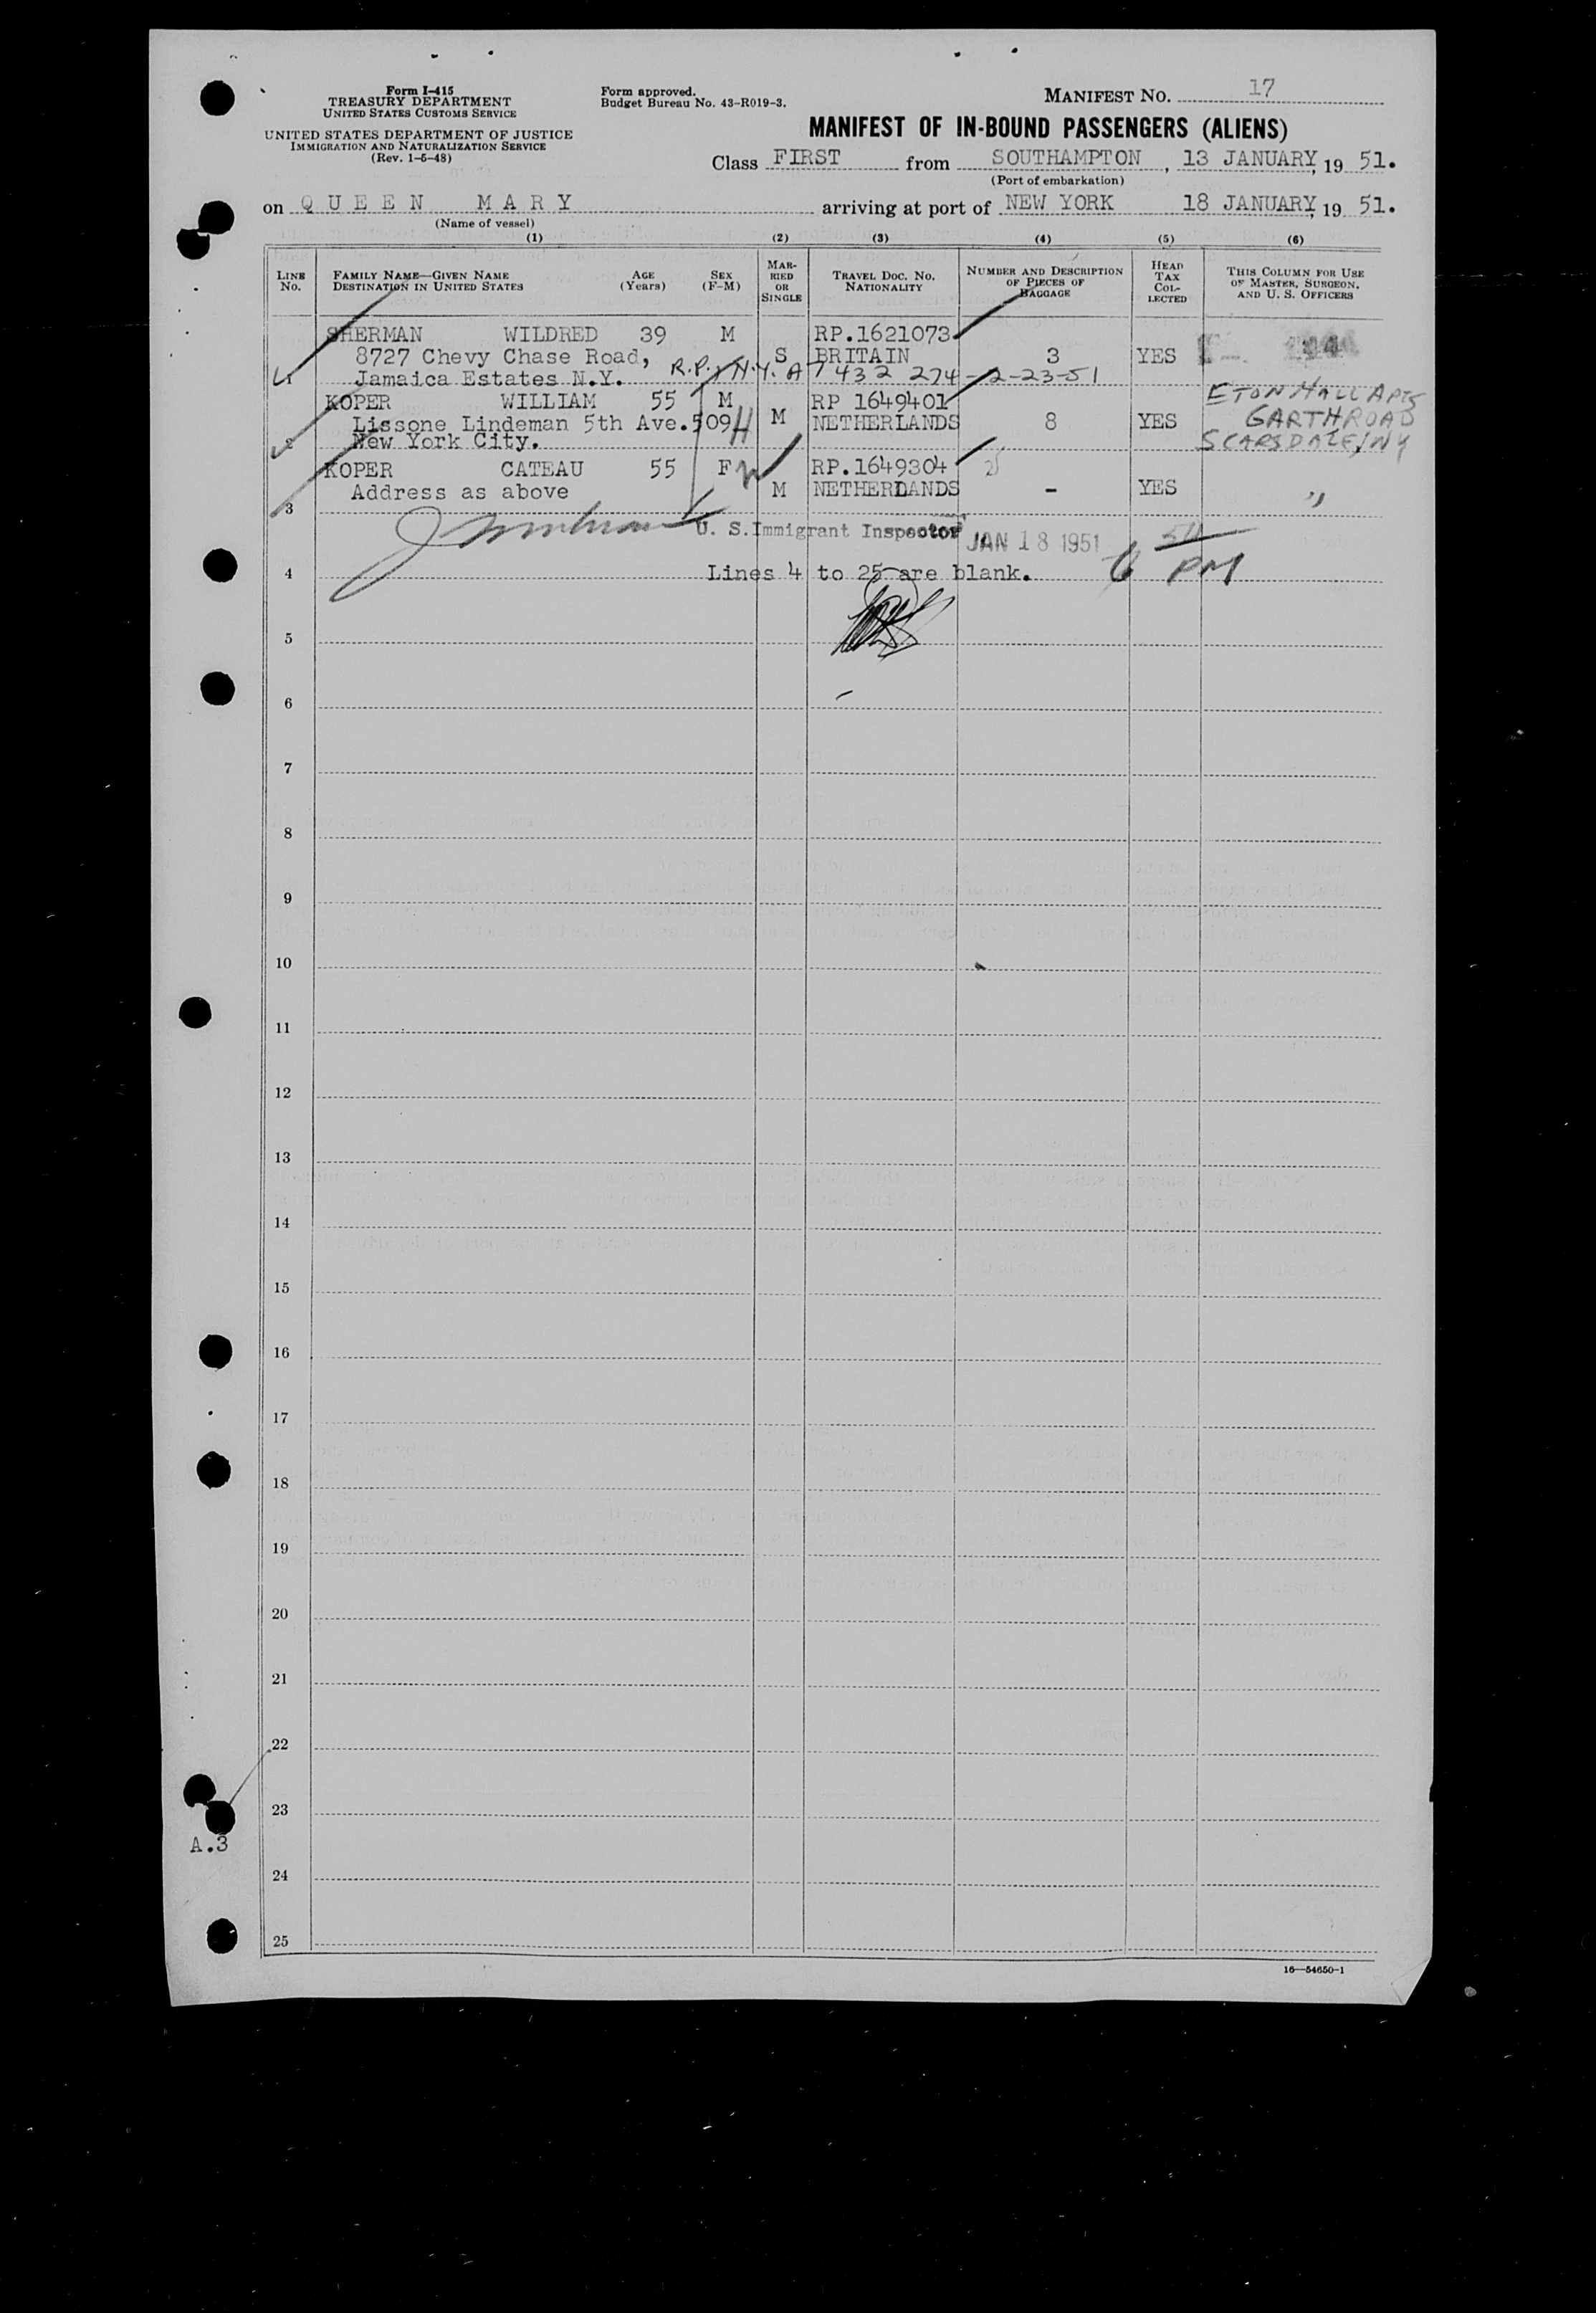 Form I-415
TREASURY DEPARTMENT
UNITED STATES CUSTOMS SERVICE
UNITED STATES DEPARTMENT OF JUSTICE
IMMIGRATION AND NATURALIZATION SERVICE
(Rev. 1-5-48)
Form approved.
Budget Bureau No. 43-R019-3.
MANIFEST NO. 17
MANIFEST OF IN-BOUND PASSENGERS (ALIENS)
Class FIRST from SOUTHAMPTON, 13 JANUARY, 19 51.
(Port of embarkation)
on QUEEN MARY arriving at port of NEW YORK 18 JANUARY, 19 51.
(Name of vessel)
(1) (2) (3) (4) (5) (6)
LINE NO.
FAMILY NAME—GIVEN NAME
DESTINATION IN UNITED STATES
AGE (Years)
SEX (F-M)
MARRIED OR SINGLE
TRAVEL DOC. NO.
NATIONALITY
NUMBER AND DESCRIPTION OF PIECES OF BAGGAGE
HEAD TAX COLLECTED
THIS COLUMN FOR USE OF MASTER, SURGEON, AND U. S. OFFICERS
SHERMAN WILDRED 39 M RP.1621073
8727 Chevy Chase Road, S BRITAIN 3 YES
1 Jamaica Estates N.Y. R.P. N.Y. A7 432 274 - 2-23-51
KOPER WILLIAM 55 M RP 1649401 ETON HALL APTS
Lissone Lindeman 5th Ave.509 M NETHERLANDS 8 YES GARTH ROAD
2 New York City. SCARSDALE, NY
KOPER CATEAU 55 F RP.1649304
Address as above M NETHERLANDS - YES "
3
U. S.Immigrant Inspector JAN 18 1951
4 Lines 4 to 25 are blank. PM
5
6
7
8
9
10
11
12
13
14
15
16
17
18
19
20
21
22
23
A.3
24
25
16—54650-1